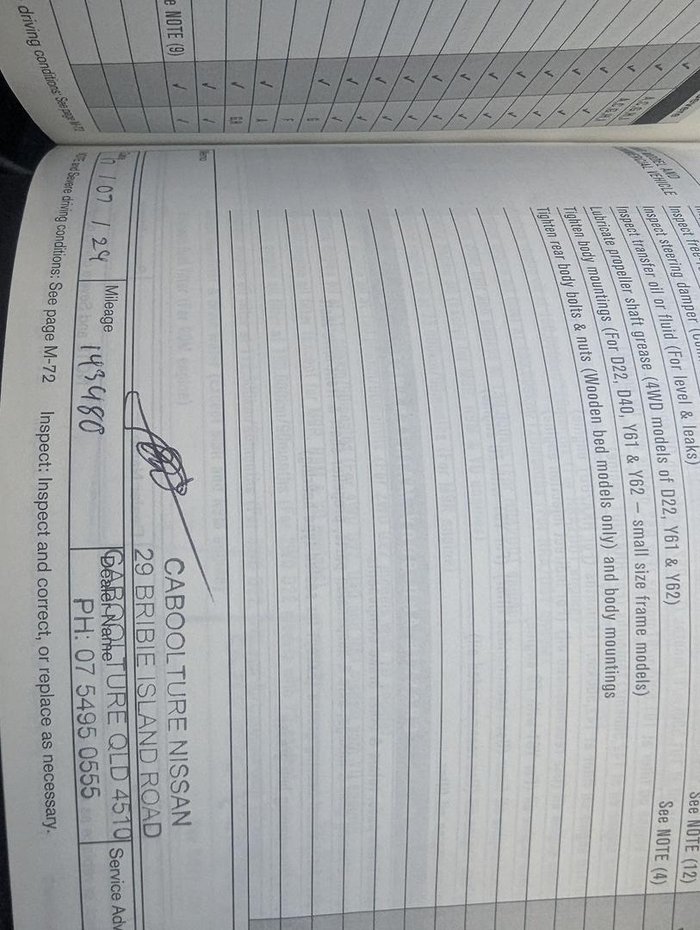 driving conditions: See page M-72
e NOTE (9)
A,C,G,H,I
A,C,G,H,I
G
F
A
MODEL AND
VEHICLE
Inspect free
Inspect steering damper
See NOTE (12)
Inspect transfer oil or fluid (For level & leaks)
See NOTE (4)
Lubricate propeller shaft grease (4WD models of D22, Y61 & Y62)
Tighten body mountings (For D22, D40, Y61 & Y62 – small size frame models)
Tighten rear body bolts & nuts (Wooden bed models only) and body mountings
Memo
CABOOLTURE NISSAN
29 BRIBIE ISLAND ROAD
CABOOLTURE QLD 4510
PH: 07 5495 0555
/ 07 / 24
Mileage
143480
Dealer Name
Service Adv
and Severe driving conditions: See page M-72 Inspect: Inspect and correct, or replace as necessary.